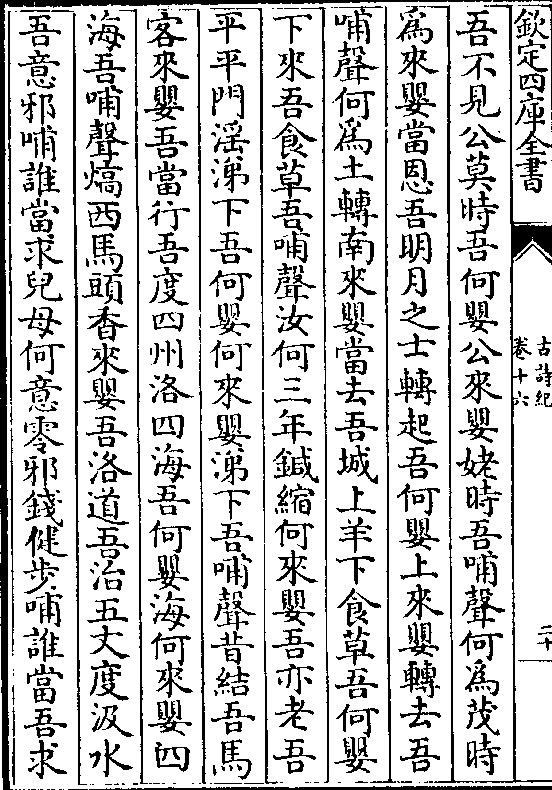 欽定四庫全書
古詩紀
卷十六
二十
吾不見公莫時吾何嬰公來嬰姥時吾哺聲何爲茂時
爲來嬰當恩吾明月之士轉起吾何嬰上來嬰轉去吾
哺聲何爲土轉南來嬰當去吾城上羊下食草吾何嬰
下來吾食草吾哺聲汝何三年鍼縮何來嬰吾亦老吾
平平門滛涕下吾何嬰何來嬰涕下吾哺聲昔結吾馬
客來嬰吾當行吾度四州洛四海吾何嬰海何來嬰四
海吾哺聲熇西馬頭香來嬰吾洛道吾治五丈度汲水
吾意邪哺誰當求兒母何意零邪錢健步哺誰當吾求